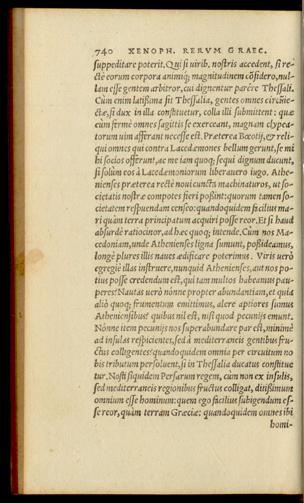 740 XENOPH. RERVM GRAEC.
suppeditare poterit. Qui si uirib. nostris accedent, si re-
ctè eorum corpora animiq; magnitudinem cōsidero, nul-
lam esse gentem arbitror, cui dignentur parêre Thessali.
Cùm enim latissima sit Thessalia, gentes omnes circūie-
ctæ, si dux in illa constituetur, colla illi submittent: quæ
cùm fermè omnes sagittis se exerceant, magnam clypea-
torum uim afferant necesse est. Præterea Bœotij, & reli-
qui omnes qui contra Lacedæmones bellum gerunt, se mi
hi socios offerunt, ac me iam quoq; sequi dignum ducunt,
si solùm eos à Lacedæmoniorum liberauero iugo. Athe-
nienses præterea rectè noui cunctis machinaturos, ut so-
cietatis nostræ compotes fieri possint: quorum tamen so-
cietatem respuendam censeo: quandoquidem facilius ma-
ri quàm terra principatum acquiri posse reor. Et si haud
absurdè ratiocinor, ad hæc quoq; intende. Cùm nos Ma-
cedoniam, unde Athenienses ligna sumunt, possideamus,
longè plures illis naues ædificare poterimus. Viris uerò
egregiè illas instruere, nunquid Athenienses, aut nos po-
tius posse credendum est, qui tam multos habeamus pau-
peres? Nautas uerò nónne propter abundantiam, et quia
aliò quoq; frumentum emittimus, alere aptiores sumus
Atheniensibus? quibus nil est, nisi quod pecunijs emunt.
Nónne item pecunijs nos superabundare par est, minimè
ad insulas respicientes, sed à mediterraneis gentibus fru-
ctus colligentes? quandoquidem omnia per circuitum no
bis tributum persoluent, si in Thessalia ducatus constitue
tur. Nosti siquidem Persarum regem, cùm non ex insulis,
sed mediterraneis regionibus fructus colligat, ditissimum
omnium esse hominum: quem ego facilius subigendum es-
se reor, quàm terram Græciæ: quandoquidem omnes ibi
homi-